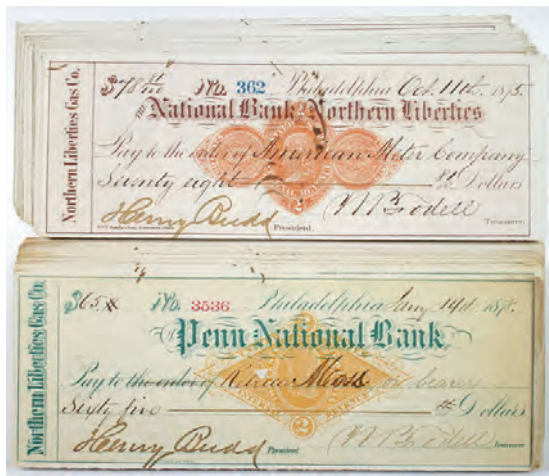 Northern Liberties Gas Co.
$78 No. 362 Philadelphia Oct. 11th 1875.
National Bank Northern Liberties
Pay to the order of American Meter Company
Seventy eight Dollars
Henry Budd President. Treasurer.
Northern Liberties Gas Co.
$65 No. 3536 Philadelphia Jany 14th 187
Penn National Bank
Pay to the order of Moss or bearer
Sixty five Dollars
Henry Budd President Treasurer